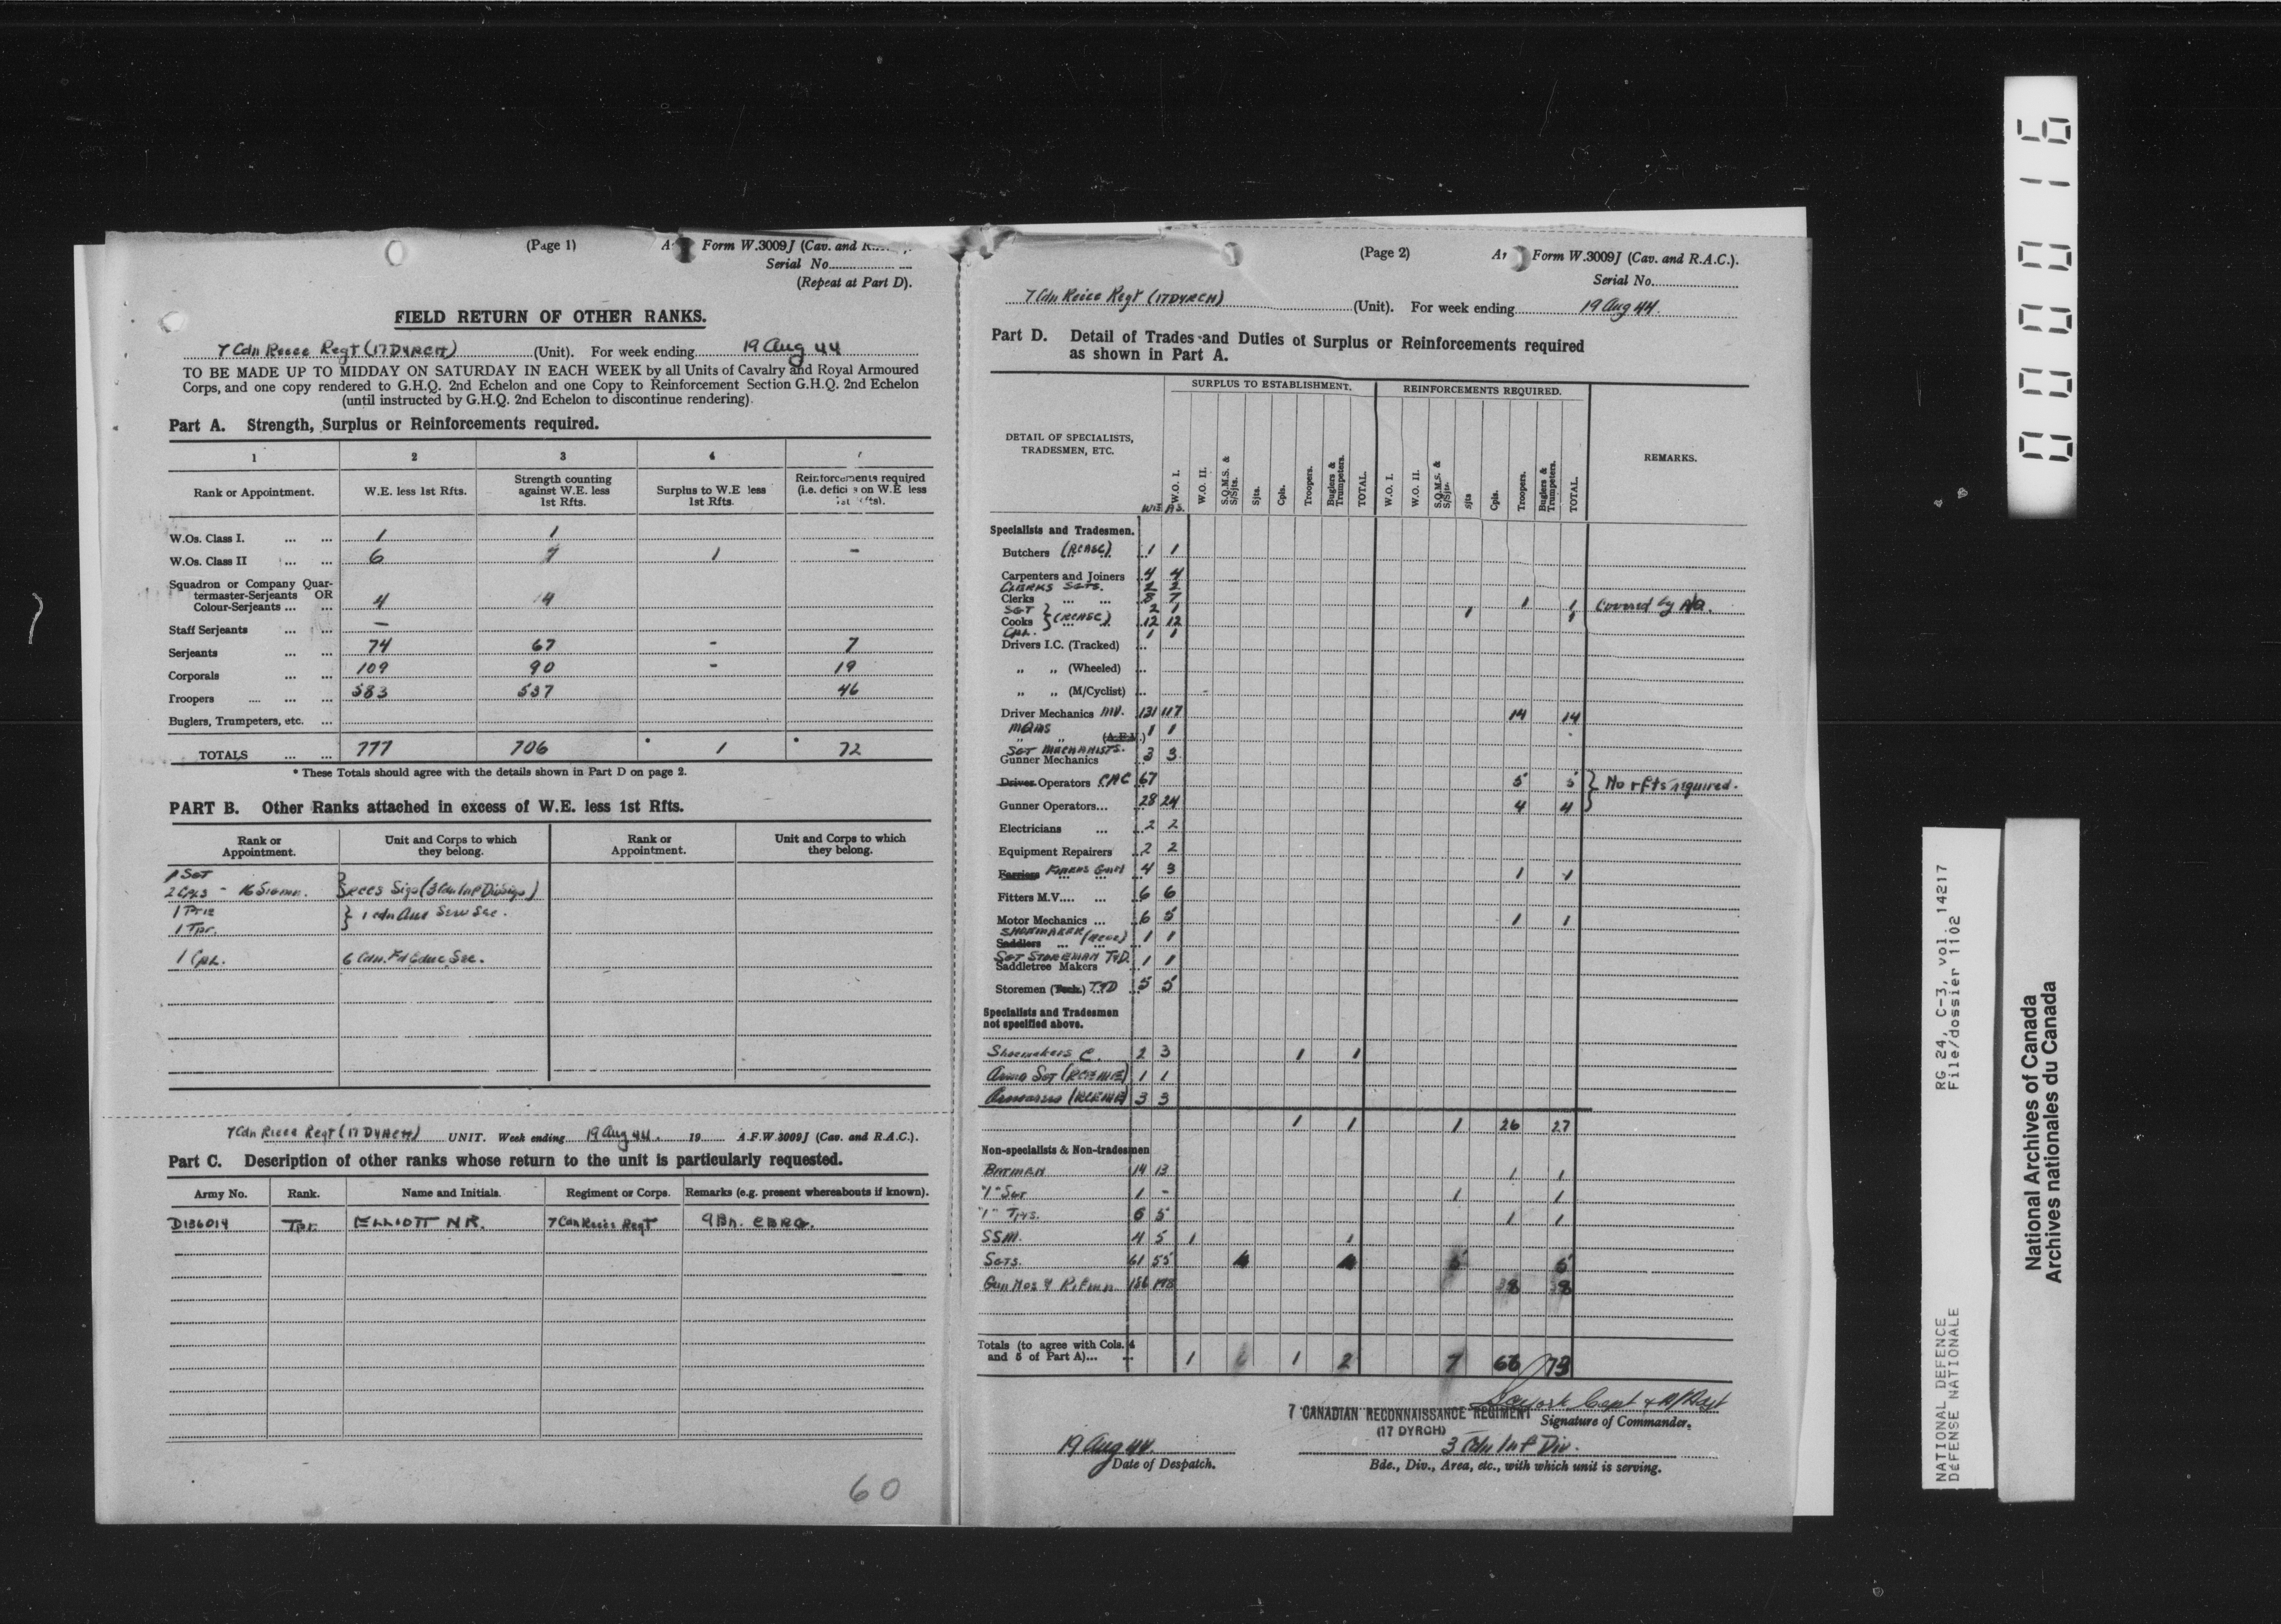 (Page 1)
Form W.3009J (Cav. and
Serial No.
(Repeat at Part D).
FIELD RETURN OF OTHER RANKS.
7 Cdn Recce Regt (17 DYRCH) (Unit). For week ending 19 Aug 44
TO BE MADE UP TO MIDDAY ON SATURDAY IN EACH WEEK by all Units of Cavalry and Royal Armoured
Corps, and one copy rendered to G.H.Q. 2nd Echelon and one Copy to Reinforcement Section G.H.Q. 2nd Echelon
(until instructed by G.H.Q. 2nd Echelon to discontinue rendering).
Part A. Strength, Surplus or Reinforcements required.
1 2 3 4
Rank or Appointment. W.E. less 1st Rfts. Strength counting against W.E. less 1st Rfts. Surplus to W.E less 1st Rfts. Reinforcements required (i.e. on W.E less
W.Os. Class I. ... ... 1 1
W.Os. Class II ... ... 6 7 1 -
Squadron or Company Quar-
termaster-Serjeants OR
Colour-Serjeants ... ... 4 4
Staff Serjeants ... ... -
Serjeants ... ... 74 67 - 7
Corporals ... ... 109 90 - 19
Troopers .... ... ... 583 537 46
Buglers, Trumpeters, etc. ...
TOTALS ... ... 777 706 * 1 * 72
* These Totals should agree with the details shown in Part D on page 2.
PART B. Other Ranks attached in excess of W.E. less 1st Rfts.
Rank or Appointment. Unit and Corps to which they belong. Rank or Appointment. Unit and Corps to which they belong.
1 SGT
2 Cpls - 16 Sigmn. } Recce Sigs (3 Cdn Inf Div Sigs)
1 Pte
1 Tpr. } 1 Cdn Aux Serv Sec.
1 Cpl. 6 Cdn. Fd Educ. Sec.
7 Cdn Recce Regt (17 DYRCH) UNIT. Week ending 19 Aug 44. 19 A.F.W.3009J (Cav. and R.A.C.).
Part C. Description of other ranks whose return to the unit is particularly requested.
Army No. Rank. Name and Initials. Regiment or Corps. Remarks (e.g. present whereabouts if known).
D136014 Tpr. ELLIOTT N R. 7 Cdn Recce Regt 9 Bn. CBRG.
60
(Page 2)
Form W.3009J (Cav. and R.A.C.).
Serial No.
7 Cdn Recce Regt (17 DYRCH) (Unit). For week ending 19 Aug 44.
Part D. Detail of Trades and Duties of Surplus or Reinforcements required
as shown in Part A.
SURPLUS TO ESTABLISHMENT. REINFORCEMENTS REQUIRED.
DETAIL OF SPECIALISTS, TRADESMEN, ETC.
WE AS. W.O. I. W.O. II. S.Q.M.S. & S/Sjts. Sjts. Cpls. Troopers. Buglers & Trumpeters. TOTAL. W.O. I. W.O. II. S.Q.M.S. & S/Sjts. Sjts Cpls. Troopers. Buglers & Trumpeters. TOTAL. REMARKS.
Specialists and Tradesmen.
Butchers (RCASC) 1 1
Carpenters and Joiners 4 4
CLERKS SGTS. 2 2
Clerks ... ... 8 7 1 1 Covered by
SGT 2 1 1 1
Cooks } (RCASC) 12 12
CPL. 1 1
Drivers I.C. (Tracked) ...
,, ,, (Wheeled) ...
,, ,, (M/Cyclist) ...
Driver Mechanics MV. 131 117 14 14
MQMS 1 1
,, ,, (A.F.V.)
SGT MECHANISTS. 3 3
Gunner Mechanics
Driver Operators CAC 67 5 5 } No rfts required.
Gunner Operators... 28 24 4 4
Electricians ... 2 2
Equipment Repairers 2 2
Farriers 4 3 1 1
Fitters M.V.... ... 6 6
Motor Mechanics ... 6 5 1 1
SHOEMAKER
Saddlers ... 1 1
SGT STOREMAN
Saddletree Makers 1 1
Storemen (Tech.) 5 5
Specialists and Tradesmen
not specified above.
Shoemakers C. 2 3 1 1
Armr SGT (RCEME) 1 1
Armourers (RCEME) 3 3
1 1 1 26 27
Non-specialists & Non-tradesmen
BATMAN 14 13 1 1
"I" SGT 1 - 1 1
"I" Tprs. 6 5 1 1
SSM. 4 5 1 1
SGTS. 61 55 5 5
Gun Nos & Riflmn. 38 38
Totals (to agree with Cols. 4
and 5 of Part A)... ... 1 1 2 7 66 73
Capt & A/Adjt
7 CANADIAN RECONNAISSANCE REGIMENT
Signature of Commander.
(17 DYRCH)
19 Aug 44. 3 Cdn Inf Div.
Date of Despatch. Bde., Div., Area, etc., with which unit is serving.
000016
RG 24, C-3, vol. 14217
File/dossier 1102
NATIONAL DEFENCE
DÉFENSE NATIONALE
National Archives of Canada
Archives nationales du Canada